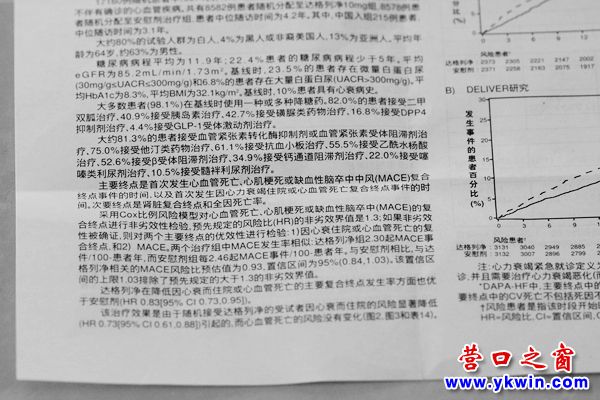 不伴有确诊的心血管疾病, 共有8582例患者随机分配至达格列净10mg组, 8578例患
者随机分配至安慰剂治疗组, 患者中位随访时间为4.2年。其中, 中国入组215例患者,
中位随访时间为3.1年。
大约80%的试验人群为白人, 4%为黑人或非裔美国人, 13%为亚洲人。平均年
龄为64岁, 约63%为男性。
糖尿病病程平均为11.9年; 22.4%患者的糖尿病病程少于5年。平均
eGFR为85.2mL/min/1.73m²。基线时, 23.5%的患者存在微量白蛋白尿
(30mg/g≤UACR≤300mg/g)和6.8%的患者存在大量白蛋白尿(UACR>300mg/g)。平
均HbA1c为8.3%, 平均BMI为32.1kg/m²。基线时, 10%患者具有心衰病史。
大多数患者(98.1%)在基线时使用一种或多种降糖药。82.0%的患者接受二甲
双胍治疗, 40.9%接受胰岛素治疗, 42.7%接受磺脲类药物治疗, 16.8%接受DPP4
抑制剂治疗, 4.4%接受GLP-1受体激动剂治疗。
大约81.3%的患者接受血管紧张素转化酶抑制剂或血管紧张素受体阻滞剂治
疗, 75.0%接受他汀类药物治疗, 61.1%接受抗血小板治疗, 55.5%接受乙酰水杨酸
治疗, 52.6%接受β受体阻滞剂治疗, 34.9%接受钙通道阻滞剂治疗, 22.0%接受噻
嗪类利尿剂治疗, 10.5%接受髓袢利尿剂治疗。
主要终点是首次发生心血管死亡、心肌梗死或缺血性脑卒中中风(MACE)复合
终点事件的时间, 以及首次发生因心力衰竭住院或心血管死亡复合终点事件的时
间。次要终点是肾脏复合终点和全因死亡率。
采用Cox比例风险模型对心血管死亡、心肌梗死或缺血性脑卒中(MACE)的复
合终点进行非劣效性检验, 预先规定的风险比(HR)的非劣效界值是1.3; 如果非劣效
性被确证, 则对两个主要终点的优效性进行检验: 1)因心衰住院或心血管死亡的复
合终点, 和2) MACE。两个治疗组中MACE发生率相似: 达格列净组2.30起MACE事
件/100-患者年, 而安慰剂组每2.46起MACE事件/100-患者年。与安慰剂相比, 与达
格列净相关的MACE风险比预估值为0.93, 置信区间为95%(0.84,1.03)。该置信区
间的上限1.03排除了预先规定的大于1.3的非劣效界值。
达格列净在降低因心衰而住院或心血管死亡的主要复合终点发生率方面也优
于安慰剂(HR 0.83[95% CI 0.73,0.95])。
该治疗效果是由于随机接受达格列净的受试者因心衰而住院的风险显著降低
(HR 0.73[95% CI 0.61,0.88])引起的, 而心血管死亡的风险没有变化(图2、图3和表14)。
0 3 6 9 12
风险患者*
达格列净: 2373 2305 2221 2147 2002
安慰剂: 2371 2258 2163 2075 1917
B) DELIVER研究
发生事件的患者百分比(%)
30
25
20
15
10
5
0
0 3 6 9
风险患者*
达格列净: 3131 3040 2949 2885
安慰剂: 3132 3007 2896 2799
注: 心力衰竭紧急就诊定义为
诊, 并且需要治疗心力衰竭恶化(而
*DAPA-HF中, 主要终点中的
要终点中的CV死亡不包括死因不
†风险患者是指该时段开始时
HR=风险比, CI=置信区间, C
营口之窗
www.ykwin.com